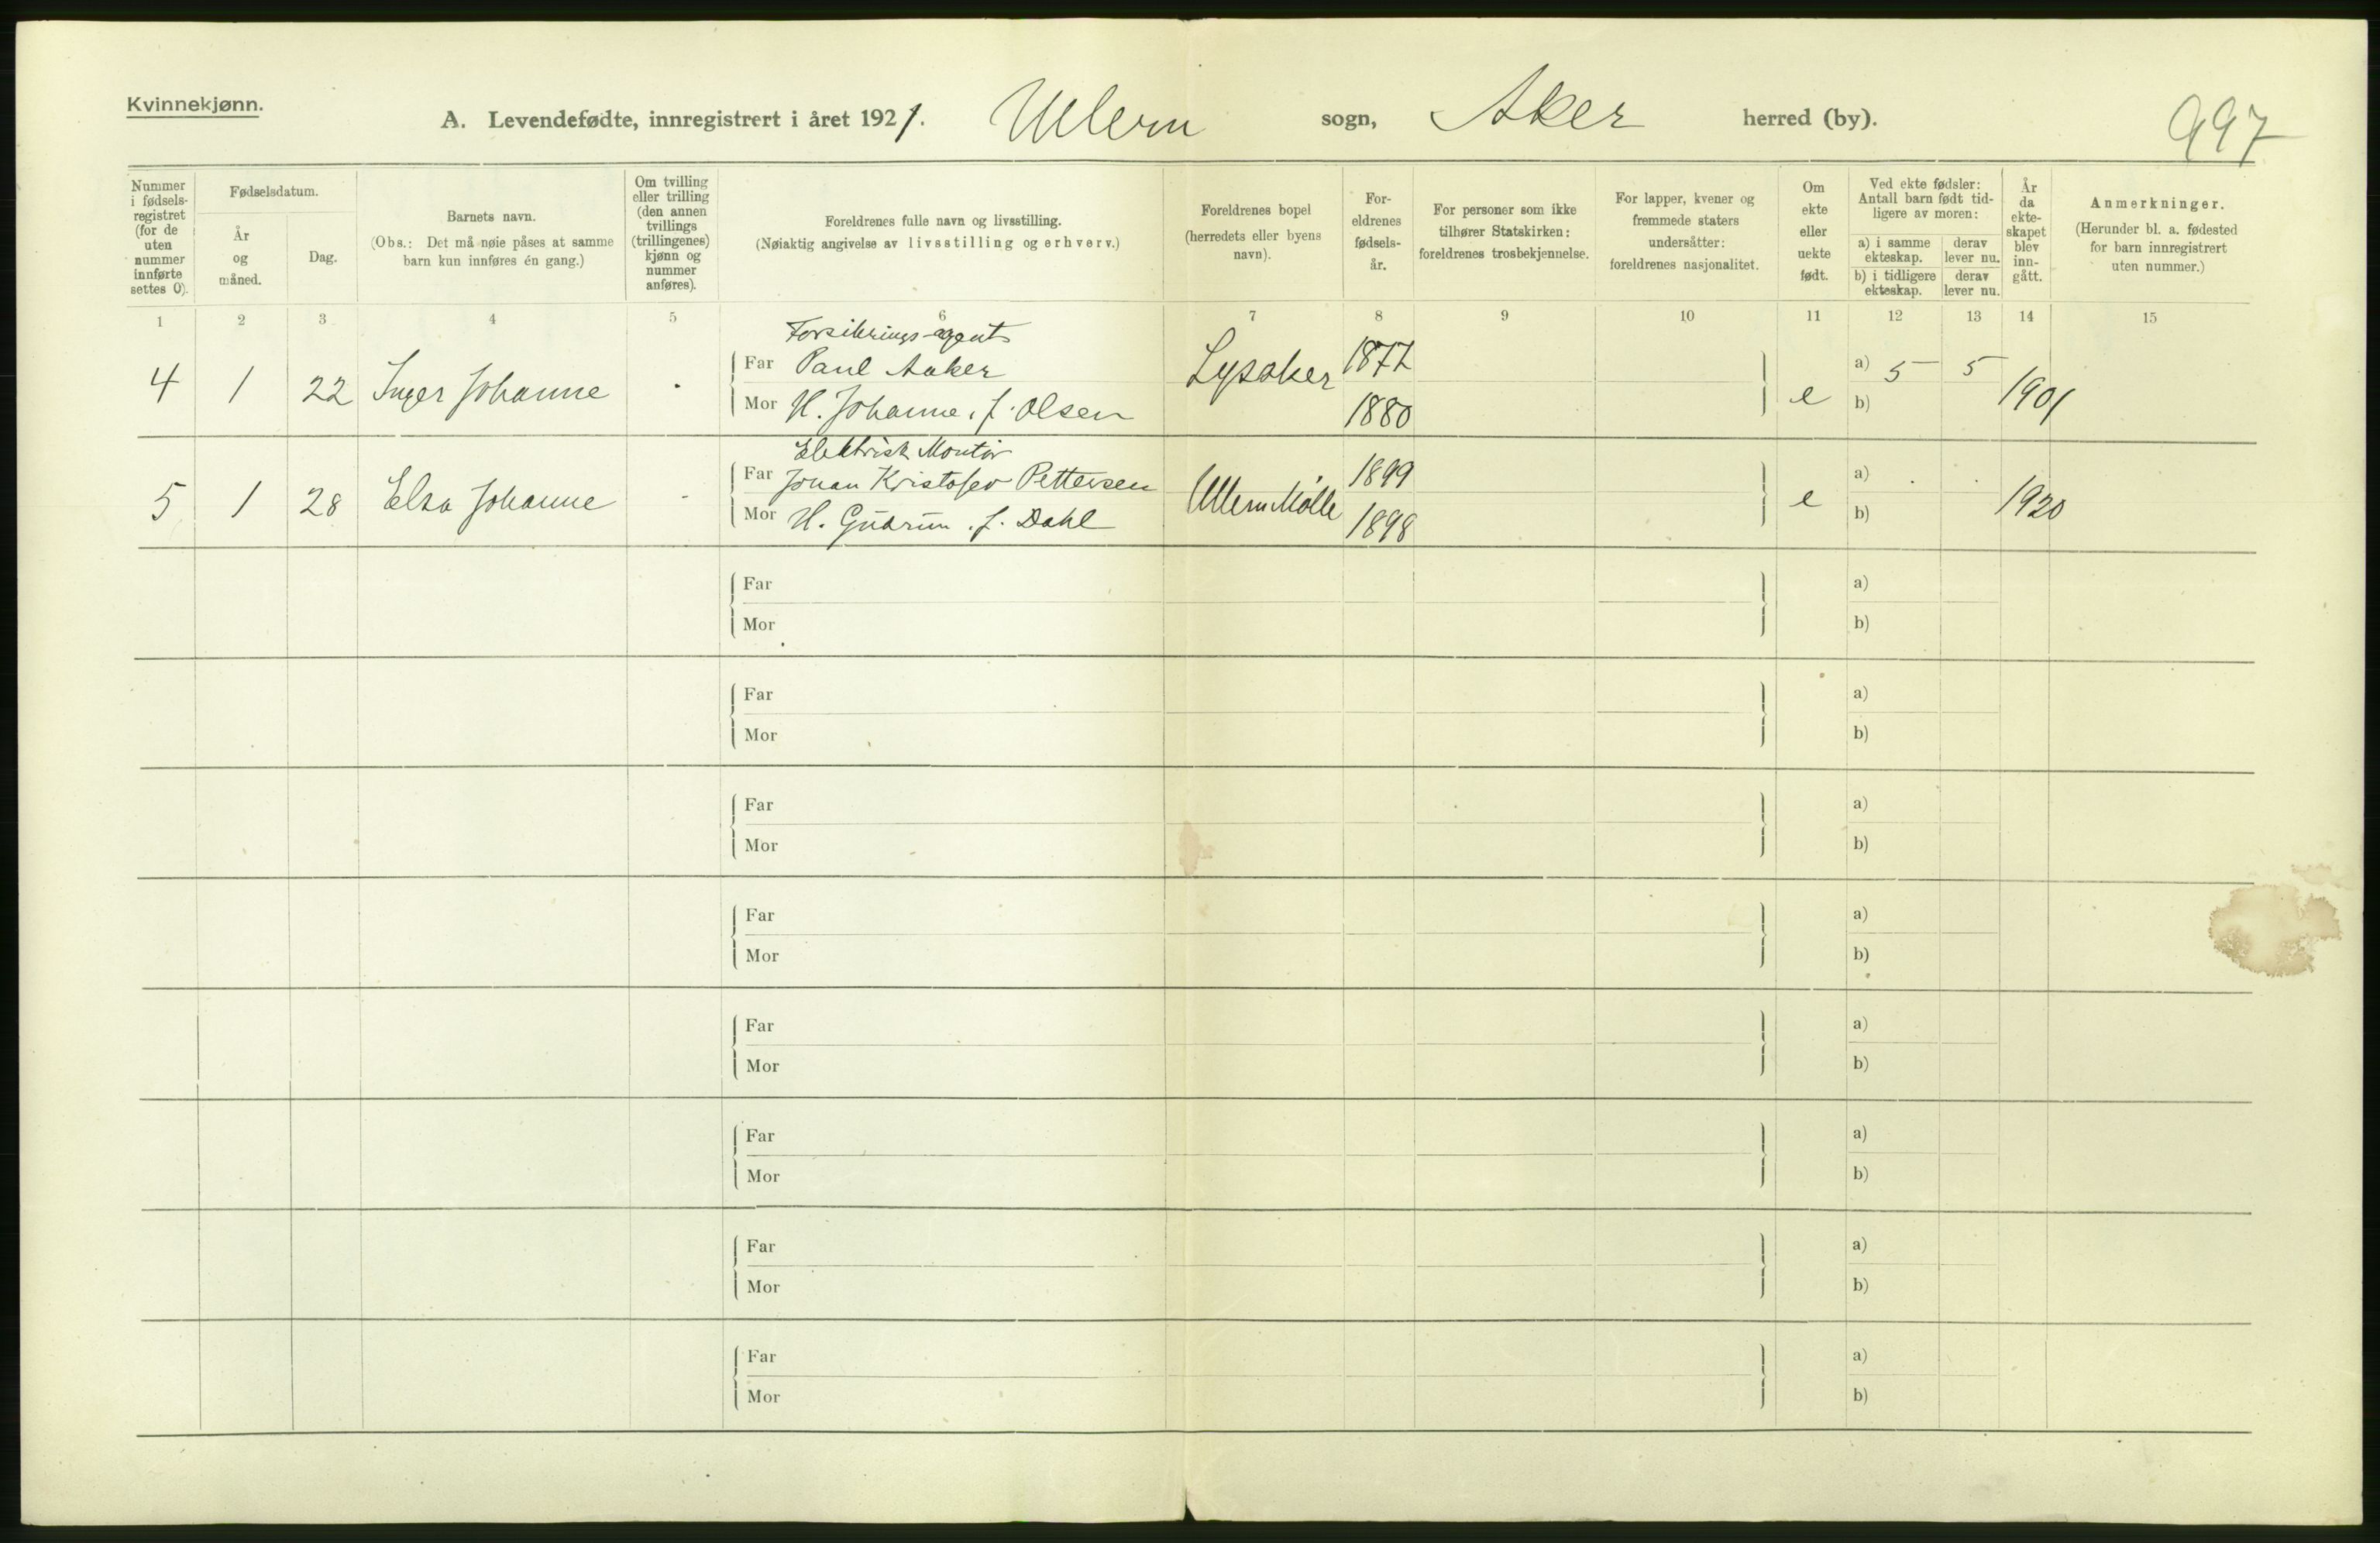 Kvinnekjønn.
A. Levendefødte, innregistrert i året 1921. Ullern sogn, Aker herred (by).
997
Nummer i fødselsregistret (for de uten nummer innførte settes 0).
Fødselsdatum.
År og måned.
Dag.
Barnets navn.
(Obs.: Det må nøie påses at samme barn kun innføres én gang.)
Om tvilling eller trilling (den annen tvillings (trillingenes) kjønn og nummer anføres).
Foreldrenes fulle navn og livsstilling.
(Nøiaktig angivelse av livsstilling og erhverv.)
Foreldrenes bopel (herredets eller byens navn).
Foreldrenes fødselsår.
For personer som ikke tilhører Statskirken: foreldrenes trosbekjennelse.
For lapper, kvener og fremmede staters undersåtter: foreldrenes nasjonalitet.
Om ekte eller uekte født.
Ved ekte fødsler: Antall barn født tidligere av moren:
a) i samme ekteskap.
derav lever nu.
b) i tidligere ekteskap.
derav lever nu.
År da ekteskapet blev inngått.
Anmerkninger.
(Herunder bl. a. fødested for barn innregistrert uten nummer.)
1 2 3 4 5 6 7 8 9 10 11 12 13 14 15
Forsikringsagent
4 1 22 Inger Johanne - Far Paul Aaker Lysaker 1877 e a) 5 5 1901
Mor H. Johanne, f. Olsen 1880 b)
Elektrisk Montör
5 1 28 Elsa Johanne - Far Johan Kristofer Pettersen Ullern Mölle 1899 e a) . . 1920
Mor H. Gudrun, f. Dahl 1898 b)
Far a)
Mor b)
Far a)
Mor b)
Far a)
Mor b)
Far a)
Mor b)
Far a)
Mor b)
Far a)
Mor b)
Far a)
Mor b)
Far a)
Mor b)